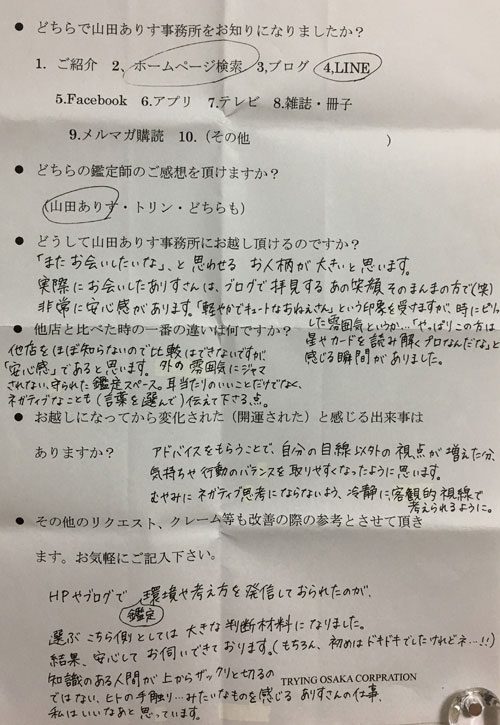 ● どちらで山田ありす事務所をお知りになりましたか？
1. ご紹介　2、ホームページ検索　3,ブログ　4,LINE
5.Facebook　6.アプリ　7.テレビ　8.雑誌・冊子
9.メルマガ購読　10.（その他　　　　　　　　）
● どちらの鑑定師のご感想を頂けますか？
（山田ありす・トリン・どちらも）
● どうして山田ありす事務所にお越し頂けるのですか？
「またお会いしたいな」、と思わせる お人柄が大きいと思います。
実際にお会いしたありすさんは、ブログで拝見するあの笑顔そのまんまの方で(笑)
非常に安心感があります。「軽やかでキュートなおねえさん」という印象を受けますが、時にピリッ
とした雰囲気というか…“やっぱりこの方は
星やカードを読み解くプロなんだな”と
感じる瞬間がありました。
● 他店と比べた時の一番の違いは何ですか？
他店をほぼ知らないので比較はできないですが
「安心感」であると思います。外の雰囲気にジャマ
されない、守られた鑑定スペース。耳当たりのいいことだけでなく、
ネガティブなことも（言葉を選んで）伝えて下さる点。
● お越しになってから変化された（開運された）と感じる出来事は
ありますか？
アドバイスをもらうことで、自分の目線以外の視点が増えた分、
気持ちや行動のバランスを取りやすくなったように思います。
むやみにネガティブ思考にならないよう、冷静に客観的視線で
考えられるように。
● その他のリクエスト、クレーム等も改善の際の参考とさせて頂き
ます。お気軽にご記入下さい。
HPやブログで 環境や考え方を発信しておられたのが、
鑑定
選ぶこちら側としては 大きな判断材料になりました。
結果、安心してお伺いできております。(もちろん、初めはドキドキでしたけれどネ…!!)
知識のある人間が上からザックリと切るの
TRYING OSAKA CORPRATION
ではない、ヒトの手触り…みたいなものを感じる ありすさんの仕事、
私はいいなあと思っています。